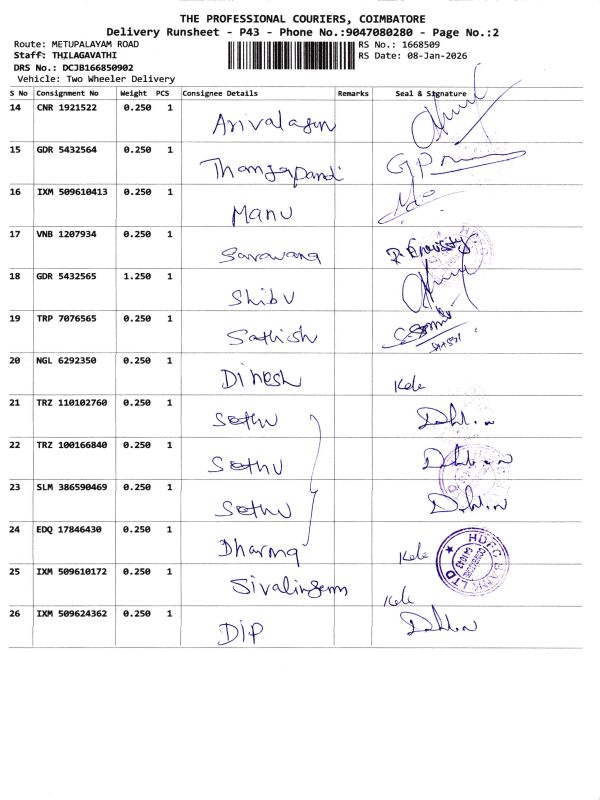 THE PROFESSIONAL COURIERS, COIMBATORE
Delivery Runsheet - P43 - Phone No.:9047080280 - Page No.:2
Route: METUPALAYAM ROAD RS No.: 1668509
Staff: THILAGAVATHI RS Date: 08-Jan-2026
DRS No.: DCJB166850902
Vehicle: Two Wheeler Delivery
S No Consignment No Weight PCS Consignee Details Remarks Seal & Signature
14 CNR 1921522 0.250 1 Arivalagan
15 GDR 5432564 0.250 1 Thangapandi
16 IXM 509610413 0.250 1 Manu
17 VNB 1207934 0.250 1 Saravana
18 GDR 5432565 1.250 1 Shibu
19 TRP 7076565 0.250 1 Sathish
20 NGL 6292350 0.250 1 Dinesh
21 TRZ 110102760 0.250 1 Sethu
22 TRZ 100166840 0.250 1 Sethu
23 SLM 386590469 0.250 1 Sethu
24 EDQ 17846430 0.250 1 Dharma HDFC BANK LTD
25 IXM 509610172 0.250 1 Sivalingam
26 IXM 509624362 0.250 1 DIP